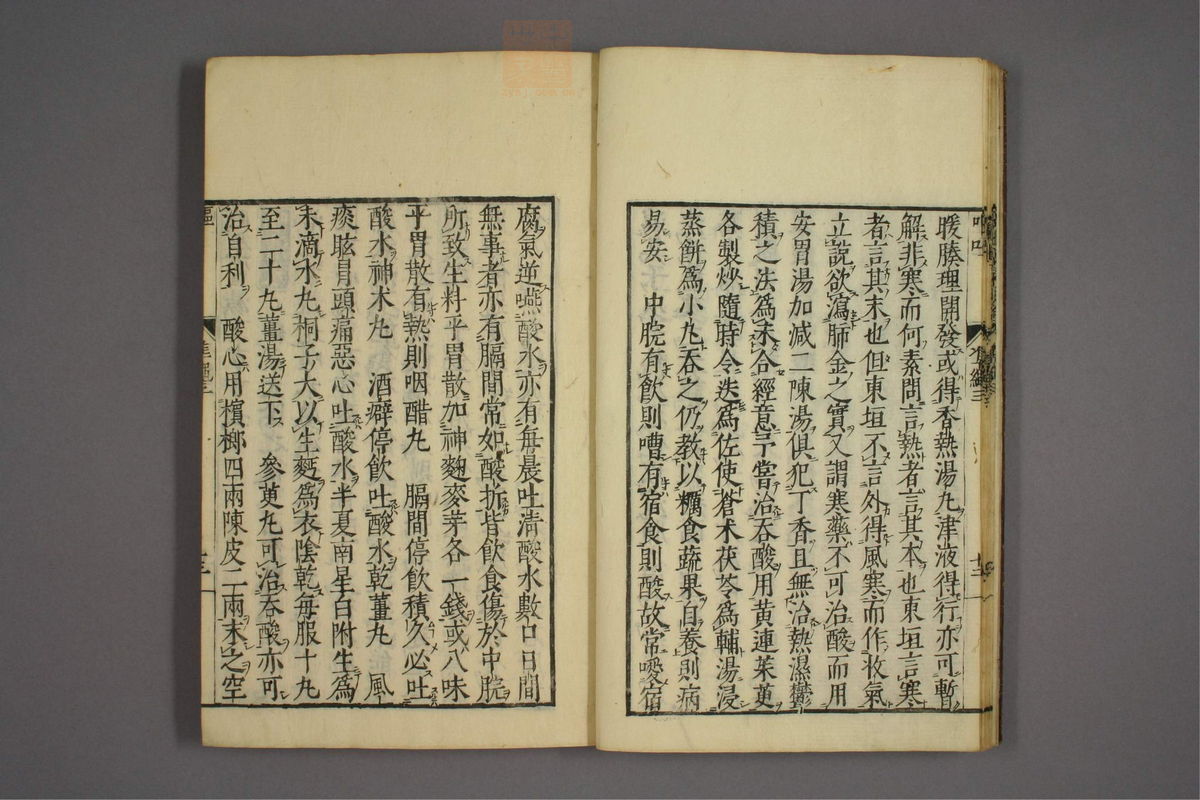 暖腠理開發或得香熱湯丸津液得行亦可暫
解非寒而何素問言熱者言其本也東垣言寒
者言其末也但東垣不言外得風寒而作收氣
立說欲瀉肺金之實又謂寒藥不可治酸而用
安胃湯加減二陳湯俱犯丁香且無治熱濕鬱
積之法爲未合經意予嘗治吞酸用黃連茱萸
各製炒隨時令迭爲佐使蒼朮茯苓爲輔湯浸
蒸餅爲小丸吞之仍教以糲食蔬果自養則病
易安　中脘有飲則嘈有宿食則酸故常噯宿
腐氣逆嚥酸水亦有每晨吐清酸水數口日間
無事者亦有膈間常如酸折皆飲食傷於中脘
所致生料平胃散加神麴麥芽各一錢或八味
平胃散有熱則咽醋丸　膈間停飲積久必吐
酸水神朮丸　酒癖停飲吐酸水乾薑丸　風
痰眩冒頭痛惡心吐酸水半夏南星白附生爲
末滴水丸桐子大以生麪爲衣陰乾每服十丸
至二十丸薑湯送下　參萸丸可治吞酸亦可
治自利　酸心用檳榔四兩陳皮二兩末之空